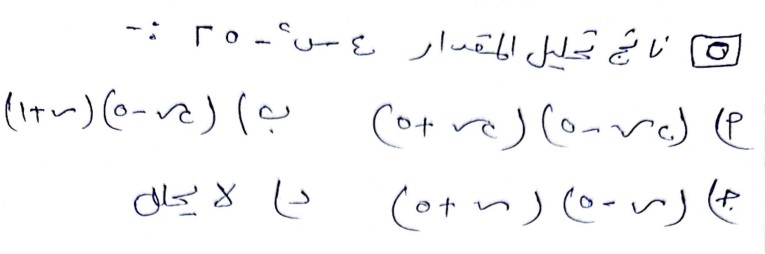 ٥ ناتج تحليل المقدار ٤س٢ - ٢٥ :-
أ) (٢س - ٥) (٢س + ٥) ب) (٢س - ٥) (س + ١)
ج) (س - ٥) (س + ٥) د) لا يحلل